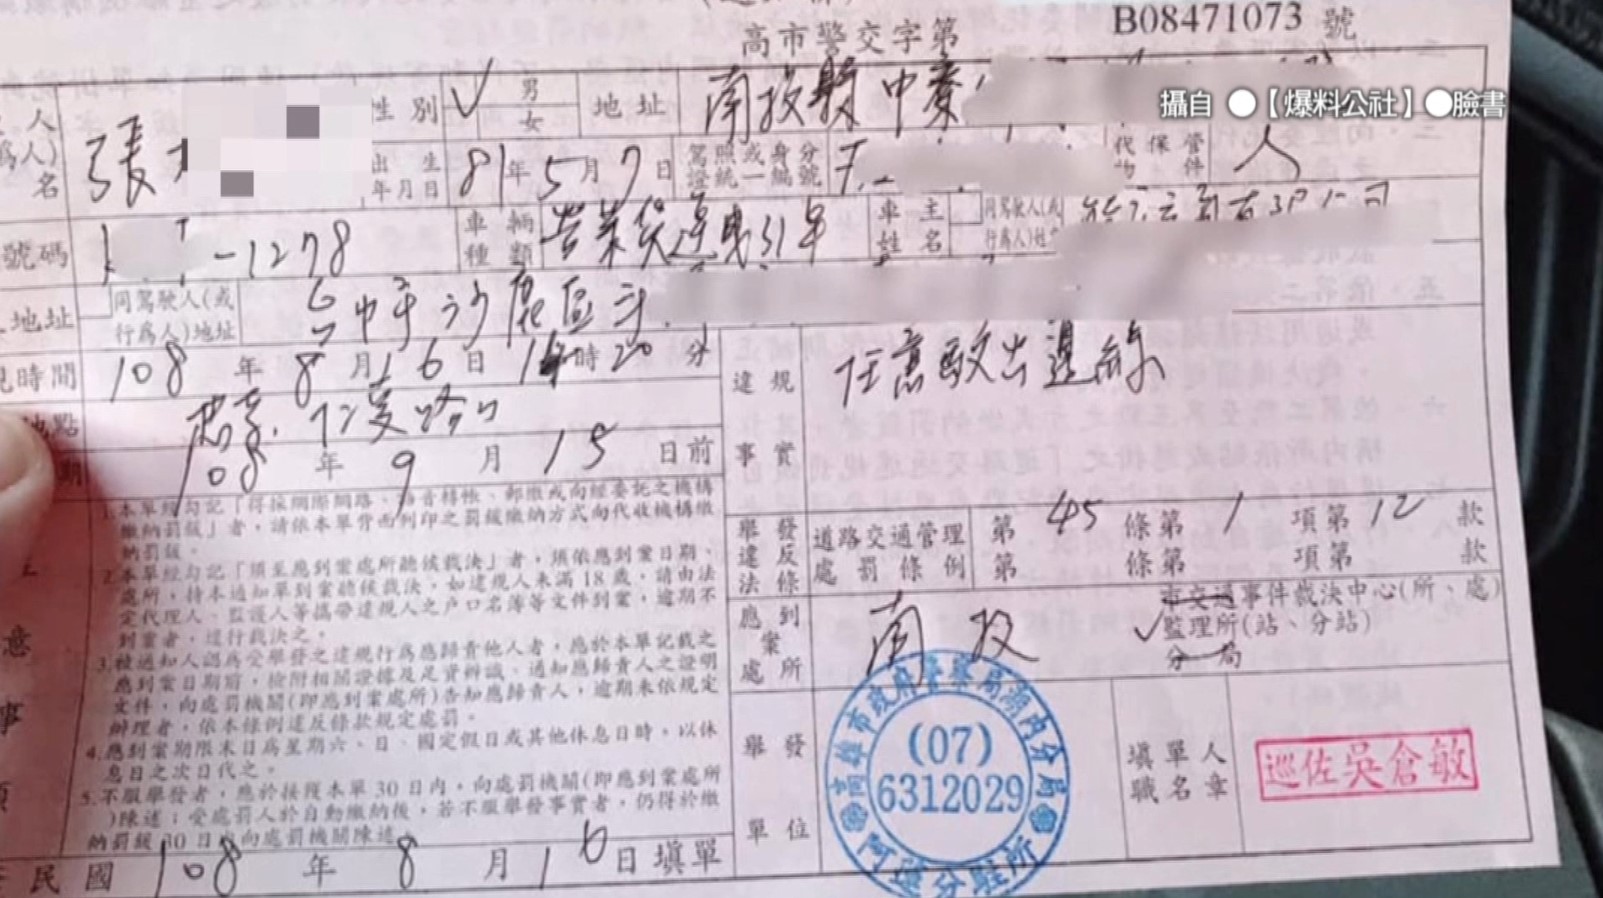 高市警交字第 B08471073 號
攝自 ●【爆料公社】●臉書
人 張 性別 ✓ 男 女 地址 南投縣 中寮
為人)
名 出生年月日 81年5月7日 駕照或身分證統一編號 代保管物件 人
號碼 -1278 車輛種類 營業貨運曳引車 車主姓名 同駕駛人(或行為人)姓
地址 同駕駛人(或行為人)地址 台中市沙鹿區
時間 108年8月16日14時20分
地點 仁愛路口
期 108年9月15日前
違規事實 任意駛出邊線
1.本單經勾記「得採網際網路、語音轉帳、郵繳或向經委託之機構
繳納罰鍰」者,請依本單背面列印之罰鍰繳納方式向代收機構繳
納罰鍰。
2.本單經勾記「須至應到案處所聽候裁決」者,須依應到案日期、
處所,持本通知單到案聽候裁決,如違規人未滿18歲,請由法
定代理人、監護人等攜帶違規人之戶口名簿等文件到案,逾期不
到案者,逕行裁決之。
3.被通知人認為受舉發之違規行為應歸責他人者,應於本單記載之
應到案日期前,檢附相關證據及足資辨識、通知應歸責人之證明
文件,向處罰機關(即應到案處所)告知應歸責人,逾期未依規定
辦理者,依本條例違反條款規定處罰。
4.應到案期限末日為星期六、日、國定假日或其他休息日時,以休
息日之次日代之。
5.不服舉發者,應於接獲本單30日內,向處罰機關(即應到案處所
)陳述;受處罰人於自動繳納後,若不服舉發事實者,仍得於繳
納罰鍰30日內向處罰機關陳述。
民國108年8月16日填單
舉發違反法條 道路交通管理處罰條例 第45條第1項第12款
第 條第 項第 款
應到案處所 南投 市交通事件裁決中心(所、處)
✓監理所(站、分站)
分局
舉發單位 高雄市政府警察局湖內分局
(07)
6312029
阿蓮分駐所
填單人職名章 巡佐吳倉敏
意
事
項